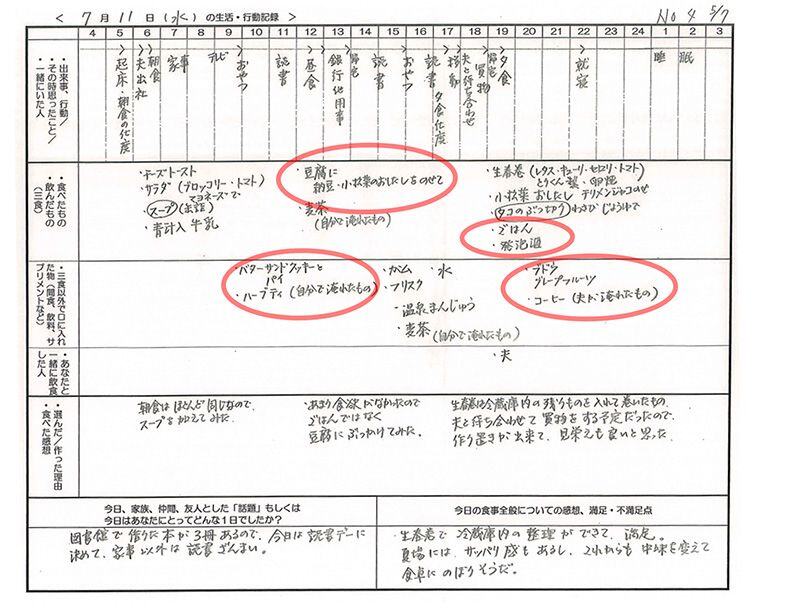 < 7月11日(水)の生活・行動記録 >
No 4 5/7
4 5 6 7 8 9 10 11 12 13 14 15 16 17 18 19 20 21 22 23 24 1 2 3
・出来事、行動/
・その時思ったこと/
・一緒にいた人
起床・朝食の仕度
夫出社
朝食
家事
テレビ
おやつ
読書
昼食
銀行他用事
帰宅
読書
おやつ
読書
夕食仕度
移動
夫と待ち合わせ
買物
帰宅
夕食
就寝
睡眠
・食べたもの
・飲んだもの
(三食)
・チーズトースト
・サラダ(ブロッコリー・トマト)
マヨネーズで
・スープ(缶詰)
・青汁入牛乳
・豆腐に
納豆・小松菜のおしたしをのせて
・麦茶
(自分で淹れたもの)
・生春巻(レタス・キューリ・セロリ・トマト
・小松菜おしたし チリメンジャコのせ
・タコのぶつ切り わさびじょうゆで
・ごはん
・発泡酒
・三食以外で口に入れ
た物(間食、飲料、サ
プリメントなど)
・バターサンドクッキーと
パイ
・ハーブティ(自分で淹れたもの)
・ガム
・フリスク
・水
・温泉まんじゅう
・麦茶(自分で淹れたもの)
・ブドウ
グレープフルーツ
・コーヒー(夫が淹れたもの)
・あなたと
一緒に飲食
した人
・夫
・選んだ/作った理由
・食べた感想
朝食はほとんど同じなので、
スープを加えてみた。
・あまり食欲がなかったので
ごはんではなく
豆腐にぶっかけてみた。
生春巻は冷蔵庫内の残りものを入れて巻いたもの。
夫と待ち合わせて買物をする予定だったので、
作り置きが出来て、見栄えも良いと思った。
今日、家族、仲間、友人とした「話題」もしくは
今日はあなたにとってどんな1日でしたか?
図書館で借りた本が3冊あるので、今日は読書デーに
決めて、家事以外は読書ざんまい。
今日の食事全般についての感想、満足・不満足点
・生春巻で冷蔵庫内の整理ができて、満足。
夏場には、サッパリ感もあるし、これからも中味を変えて
食卓にのぼりそうだ。